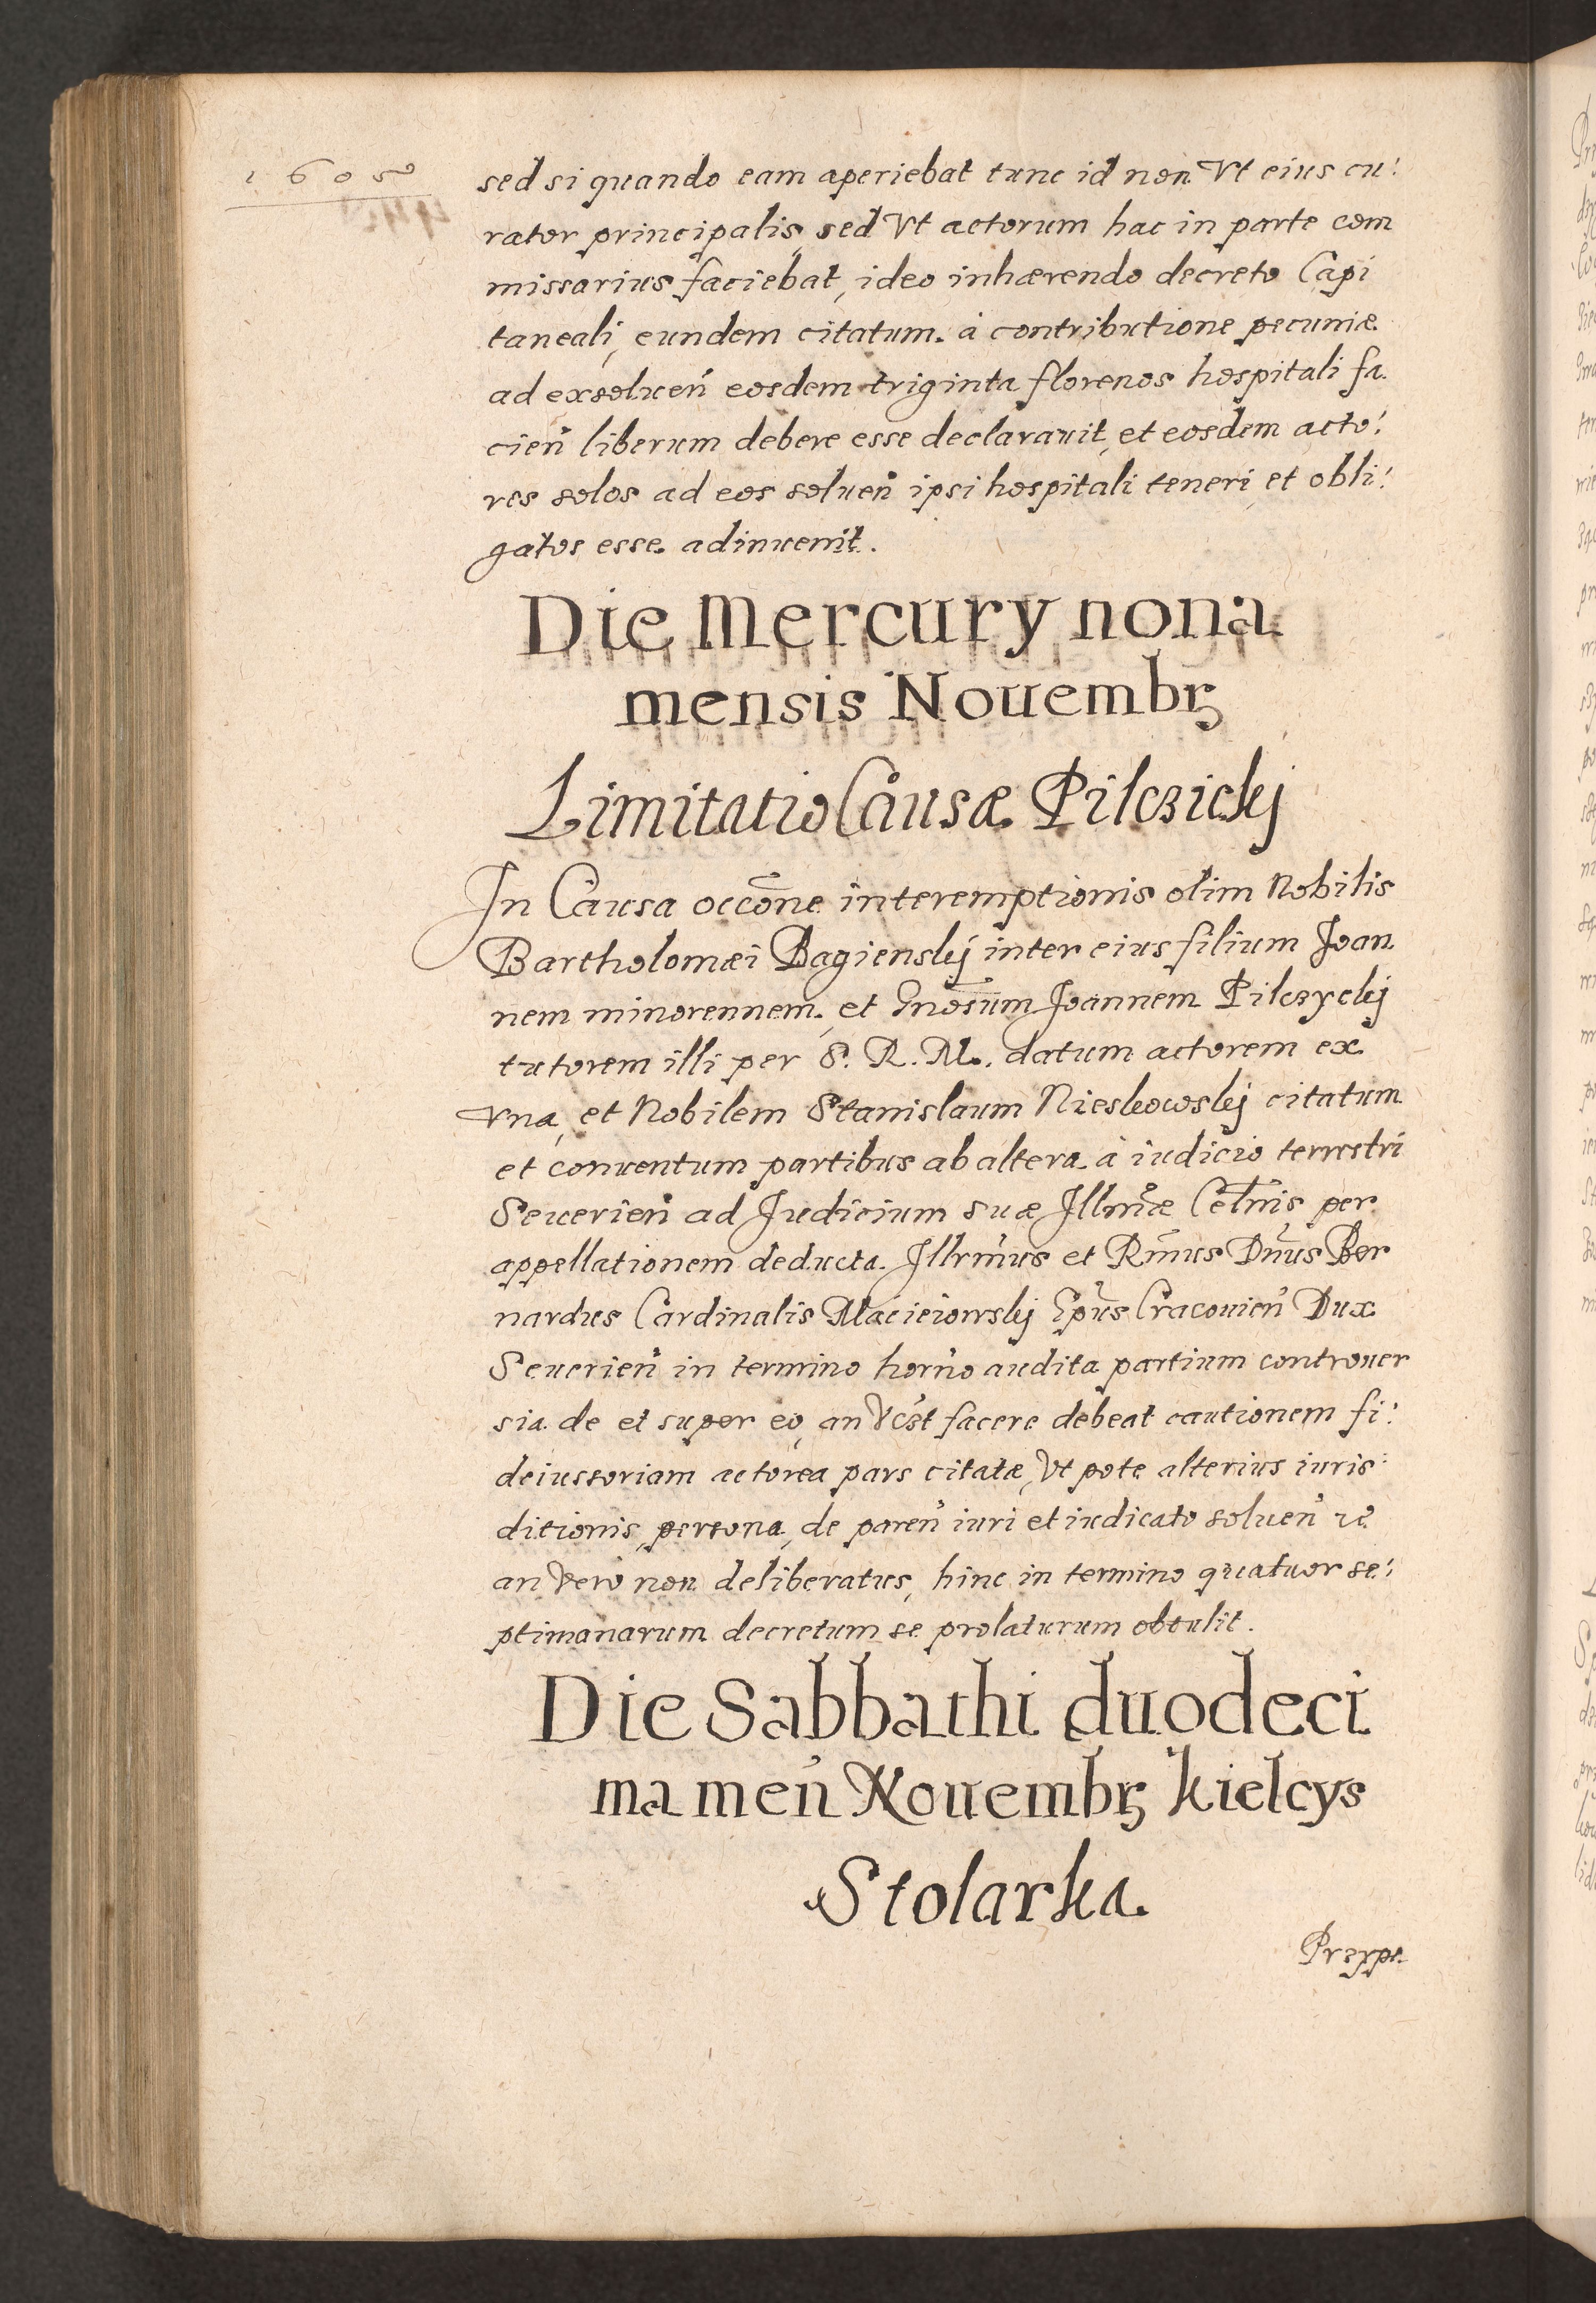 1605
sed si quando eam aperiebat tunc id non Vt eius cu:
rator principalis, sed Vt actorum hac in parte com
missarius faciebat, ideo inhærendo decreto Capi
taneali, eundem citatum à contributione pecuniæ
ad exsoluen̄ eosdem triginta florenos hospitali fa
cien̄ liberum debere esse declarauit, et eosdem acto:
res solos ad eos soluen̄ ipsi hospitali teneri, et obli:
gatos esse adinuenit.
Die Mercury nona
mensis Nouembrꝫ
Limitatio Causæ Pilczickj
In Causa occōne interemptionis olim Nobilis
Bartholomæi Bagienskj inter eius filium Joan
nem minorennem, et Gnōsum Joannem Pilczyckj
tutorem illi per S. R. M. datum actorem ex
Vna, et Nobilem Stanislaum Nieskowskj citatum
et conuentum partibus ab altera à iudicio terrestri
Seuerien̄ ad Judicium suæ Illmæ Celtnis per
appellationem deducta. Illrmus et Rm̄us Dn̄us Ber
nardus Cardinalis Macieiowskj Ep̄us Cracouien̄ Dux
Seuerien̄ in termino horño audita partium controuer
sia de et super eo, an Vc̄st facere debeat cautionem fi:
deiussoriam actorea pars citatæ, Vt pote alterius iuris:
ditionis, persona, de paren̄ iuri et iudicato soluen̄ ꝛc̄
an Vero non deliberatus, hinc in termino quatuor se:
ptimanarum decretum se prolaturum obtulit.
Die Sabbathi duodeci
ma men̄ Nouembrꝫ kielcys
Stolarka.
Przype